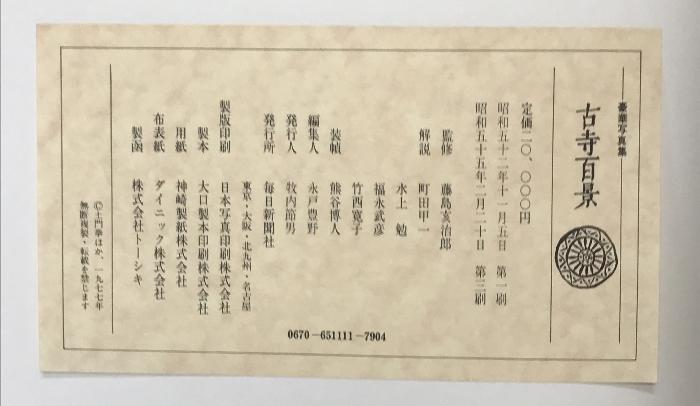 豪華写真集
古寺百景
定価二〇、〇〇〇円
昭和五十二年十一月五日 第一刷
昭和五十五年二月二十日 第三刷
監修 藤島亥治郎
解説 町田甲一
水上 勉
福永武彦
竹西寛子
装幀 熊谷博人
編集人 永戸豊野
発行人 牧内節男
発行所 毎日新聞社
東京・大阪・北九州・名古屋
製版印刷 日本写真印刷株式会社
製本 大口製本印刷株式会社
用紙 神崎製紙株式会社
布表紙 ダイニック株式会社
製函 株式会社トーシキ
©土門拳ほか、一九七七年
無断複製・転載を禁じます
0670－651111－7904